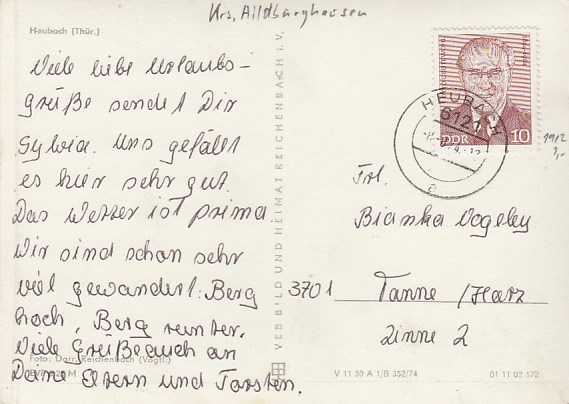 Krs. Hildburghausen
Heubach (Thür.)
Viele liebe Urlaubs-
grüße sendet Dir
Sylvia. Uns gefällt
es hier sehr gut.
Das Wetter ist prima
Wir sind schon sehr
viel gewandert: Berg
hoch, Berg runter.
Viele Grüße auch an
Deine Eltern und Torsten.
Foto: Darr, Reichenbach (Vogtl.)
VEB BILD UND HEIMAT REICHENBACH I. V.
HEUBACH
6121
a
DDR 10
1912
1,-
Frl.
Bianka Vogeley
3701 Tanne /Harz
Zinne 2
V 11 50 A 1/B 352/74
01 11 02 172